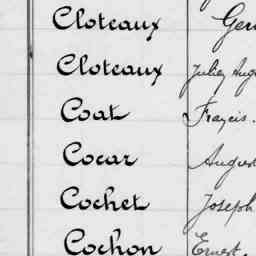 Cloteaux Ger
Cloteaux Jules Aug
Coat Françis.
Cocar August
Cochet Joseph
Cochon Ernest.